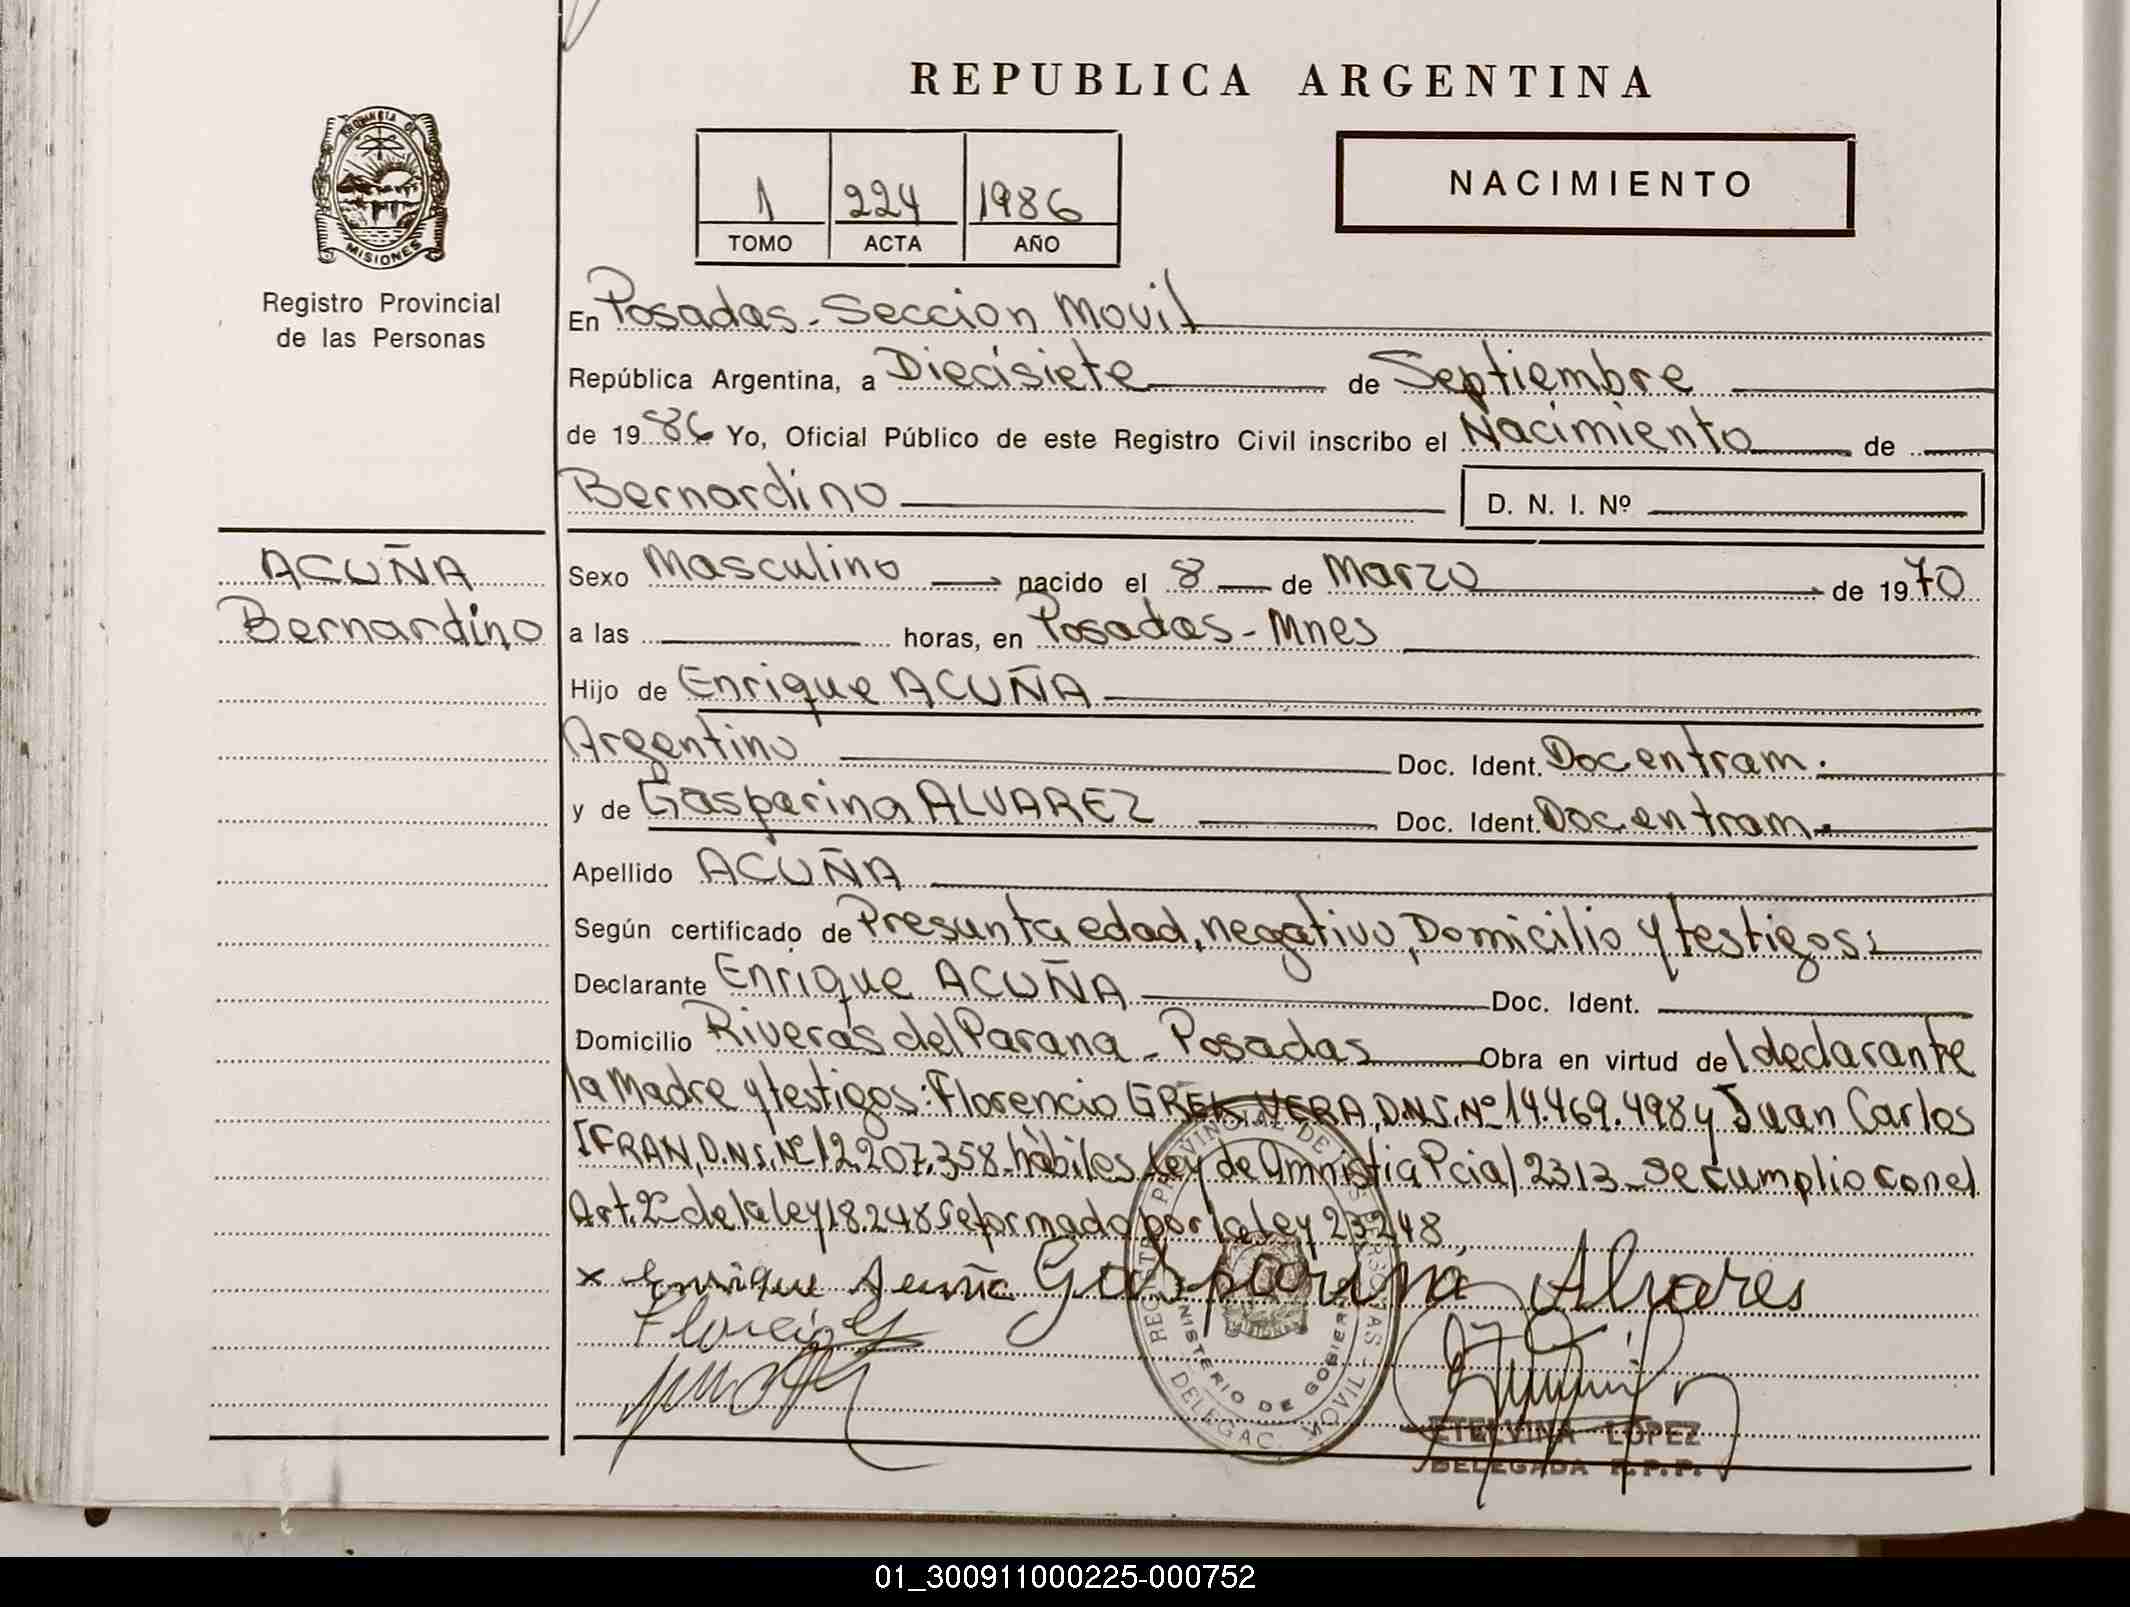 REPUBLICA ARGENTINA
PROVINCIA DE
MISIONES
Registro Provincial
de las Personas
1 224 1986
TOMO ACTA AÑO
NACIMIENTO
En Posadas - Seccion Movil
República Argentina, a Diecisiete de Septiembre
de 1986 Yo, Oficial Público de este Registro Civil inscribo el Nacimiento de
Bernardino D. N. I. Nº
ACUÑA
Bernardino
Sexo Masculino nacido el 8 de Marzo de 1970
a las horas, en Posadas - Mnes
Hijo de Enrique ACUÑA
Argentino Doc. Ident. Doc en tram.
y de Gasparina ALVAREZ Doc. Ident. Doc. en tram.
Apellido ACUÑA
Según certificado de Presunta edad, negativo, Domicilio y testigos:
Declarante Enrique ACUÑA Doc. Ident.
Domicilio Riveras del Parana - Posadas Obra en virtud del declarante
la Madre y testigos: Florencio VERA, D.N.I. Nº 14.469.498 y Juan Carlos
IFRAN, D.N.I. Nº 12.207.358 hábiles, Ley de Amnistia Pcial 2313 - Se cumplio con el
Art. 2º de la ley 18.248 reformado por la ley 23248,
x Enrique Acuña Gasparina Alvares
REGISTRO PROVINCIAL DE LAS PERSONAS
MINISTERIO DE GOBIERNO
DELEGAC. MOVIL
ETELVINA LOPEZ
DELEGADA R.P.P.
01_300911000225-000752